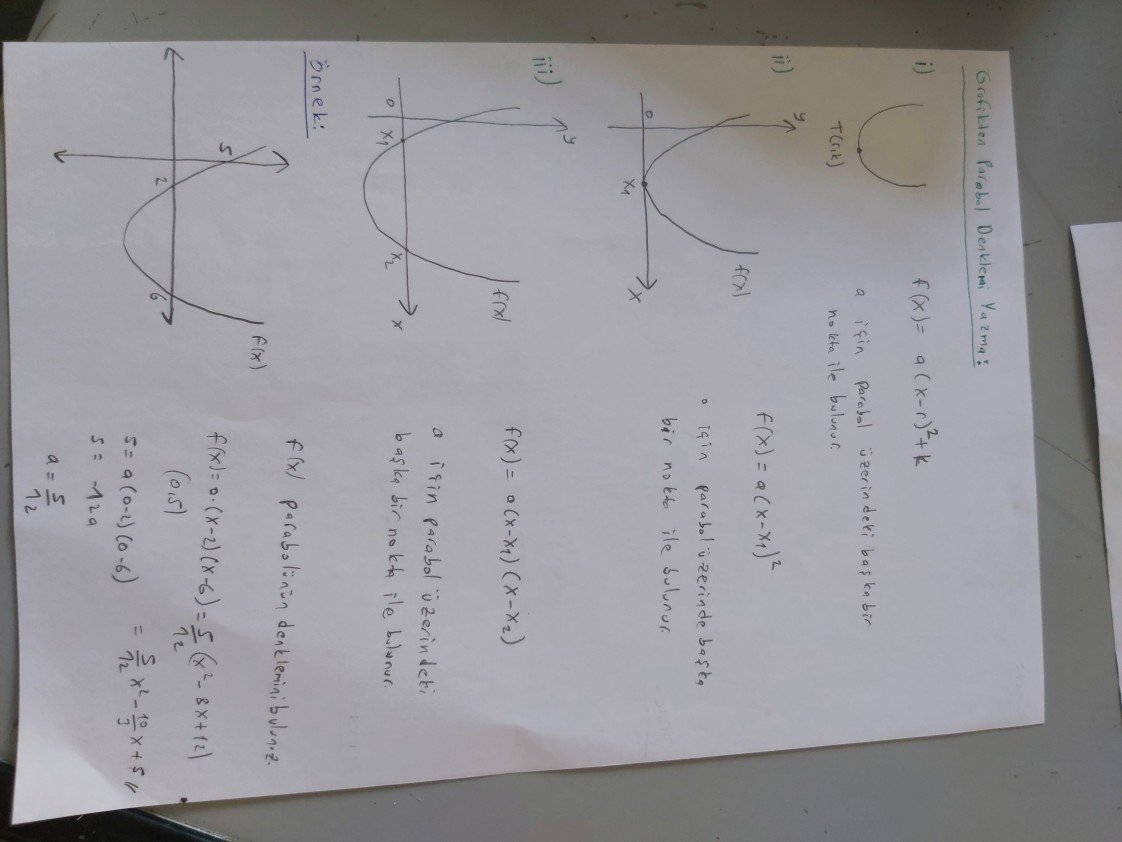 Grafikten Parabol Denklemi Yazma:
i)
T(r,k)
f(x) = a(x-r)²+k
a için parabol üzerindeki başka bir
nokta ile bulunur.
ii)
y
f(x)
0
x₁
x
f(x) = a(x-x₁)²
a için parabol üzerinde başka
bir nokta ile bulunur
iii)
y
f(x)
0
x₁
x₂
x
f(x) = a(x-x₁)(x-x₂)
a için parabol üzerindeki
başka bir nokta ile bulunur.
Örnek:
f(x)
5
2
6
f(x) parabolünün denklemini bulunuz.
f(x) = a.(x-2)(x-6) = 5/12 (x²-8x+12)
(0,5)
5 = a(0-2)(0-6) = 5/12 x² - 10/3 x + 5 //
5 = 12a
a = 5/12